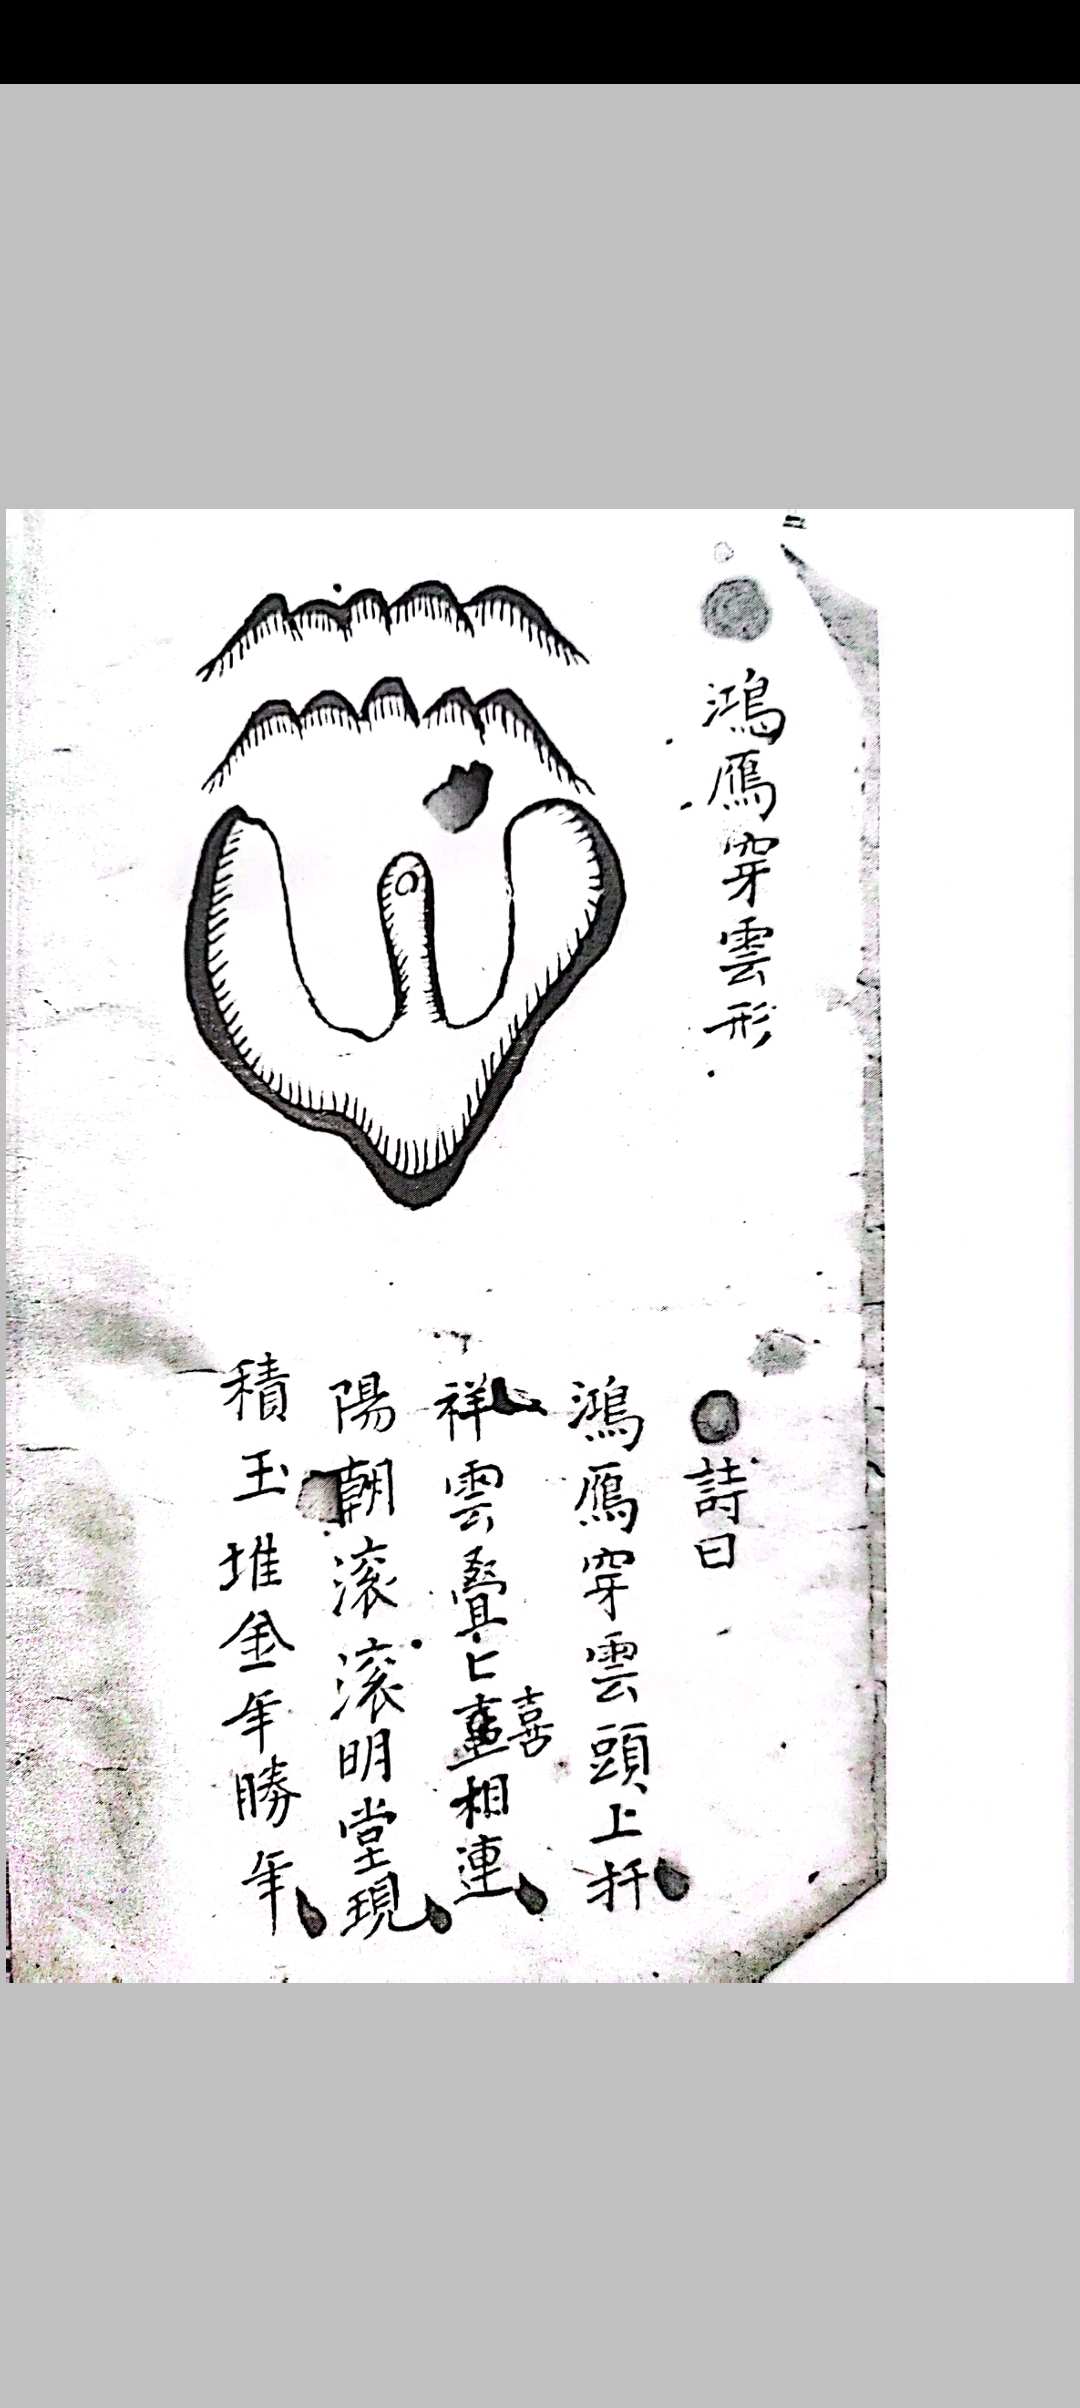 鴻鴈穿雲形
詩曰
鴻鴈穿雲頭上扦
祥雲疊疊喜相連
陽朝滚滚明堂現
積玉堆金年勝年